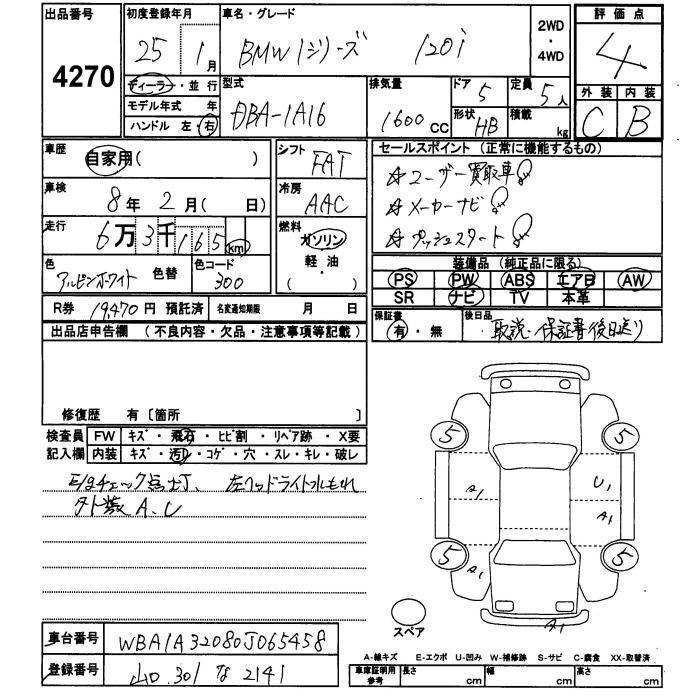 出品番号 初度登録年月 車名・グレード 2WD 評価点
4270 25 1月 BMW 1シリーズ 120i ・4WD 4
ディーラー・並行 型式 排気量 ドア 5 定員 5人 外装 内装
モデル年式 年 DBA-1A16 1600cc 形状 HB 積載 kg C B
ハンドル 左・右
車歴 自家用( ) シフト FAT セールスポイント(正常に機能するもの)
車検 8年 2月( 日) 冷房 AAC ☆ユーザー買取車
走行 6万3千165 km 燃料 ガソリン ☆メーカーナビ
軽・油 ☆プッシュスタート
色 アルピンホワイト 色替 色コード 300 ( )
装備品(純正品に限る)
PS PW ABS エアB AW
SR ナビ TV 本革
R券 19,470円 預託済 名変通知期限 月 日
保証書 有・無 後日品 取説・保証書後日送り
出品店申告欄 (不良内容・欠品・注意事項等記載)
修復歴 有〔箇所 〕
検査員 FW キズ・飛石・ヒビ割・リペア跡・X要
記入欄 内装 キズ・汚れ・コゲ・穴・スレ・キレ・破レ
E/gチェック点灯、左ヘッドライト水もれ
外装A、U
5 5
A1 U1
A1
5 5
A1
A1
スペア
車台番号 WBA1A32080J065458
登録番号 山口 301 な 2141
A-線キズ E-エクボ U-凹み W-補修跡 S-サビ C-腐食 XX-取替済
車庫証明用参考 長さ cm 幅 cm 高さ cm